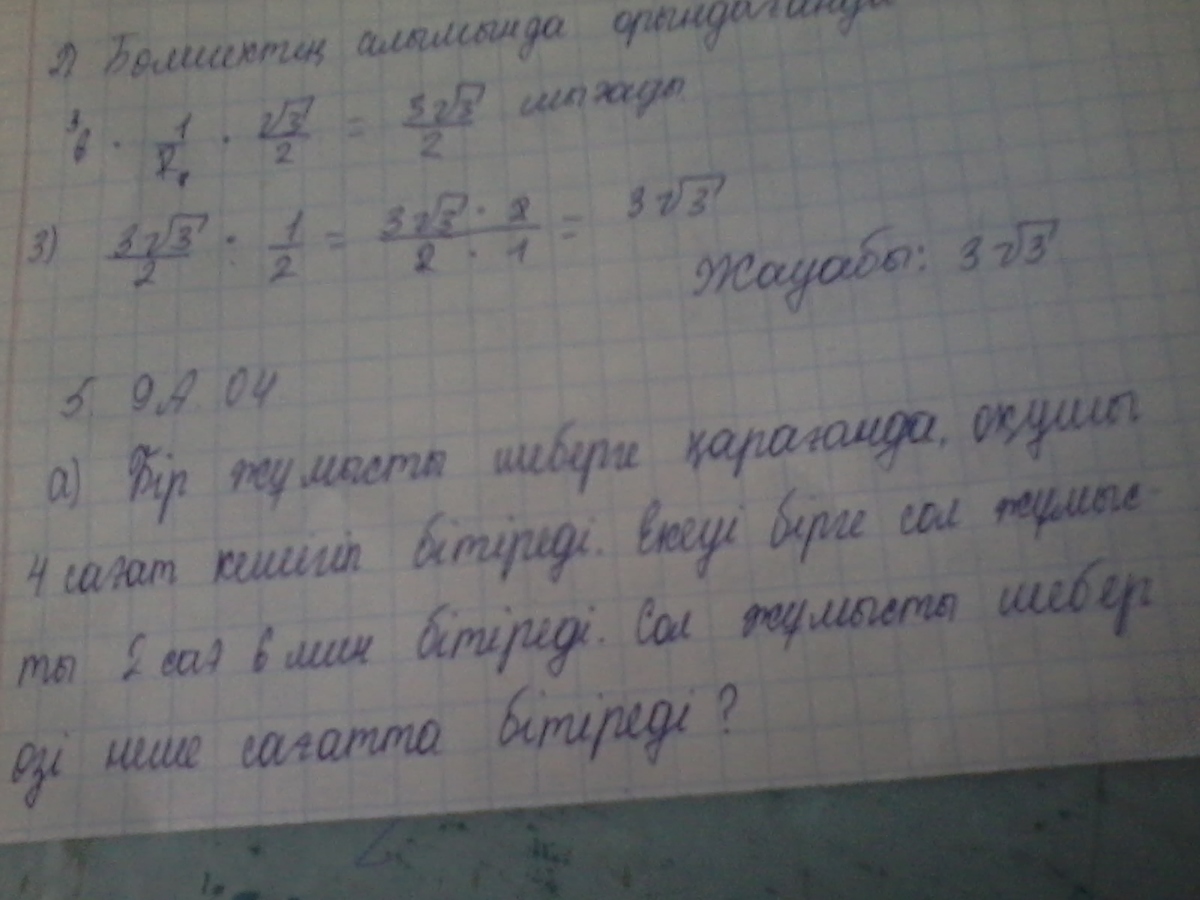 2) Бөлшектің алымында орындағанда
6 · 1/2 · √3/2 = 3√3/2 шығады
3) 3√3/2 : 1/2 = 3√3 · 2/2 · 1 = 3√3
Жауабы: 3√3
5. 9А. 04
а) Бір жұмысты шеберге қарағанда, оқушы
4 сағат кешігіп бітіреді. Екеуі бірге сол жұмыс-
ты 2 сағ 6 мин бітіреді. Сол жұмысты шебер
өзі неше сағатта бітіреді?